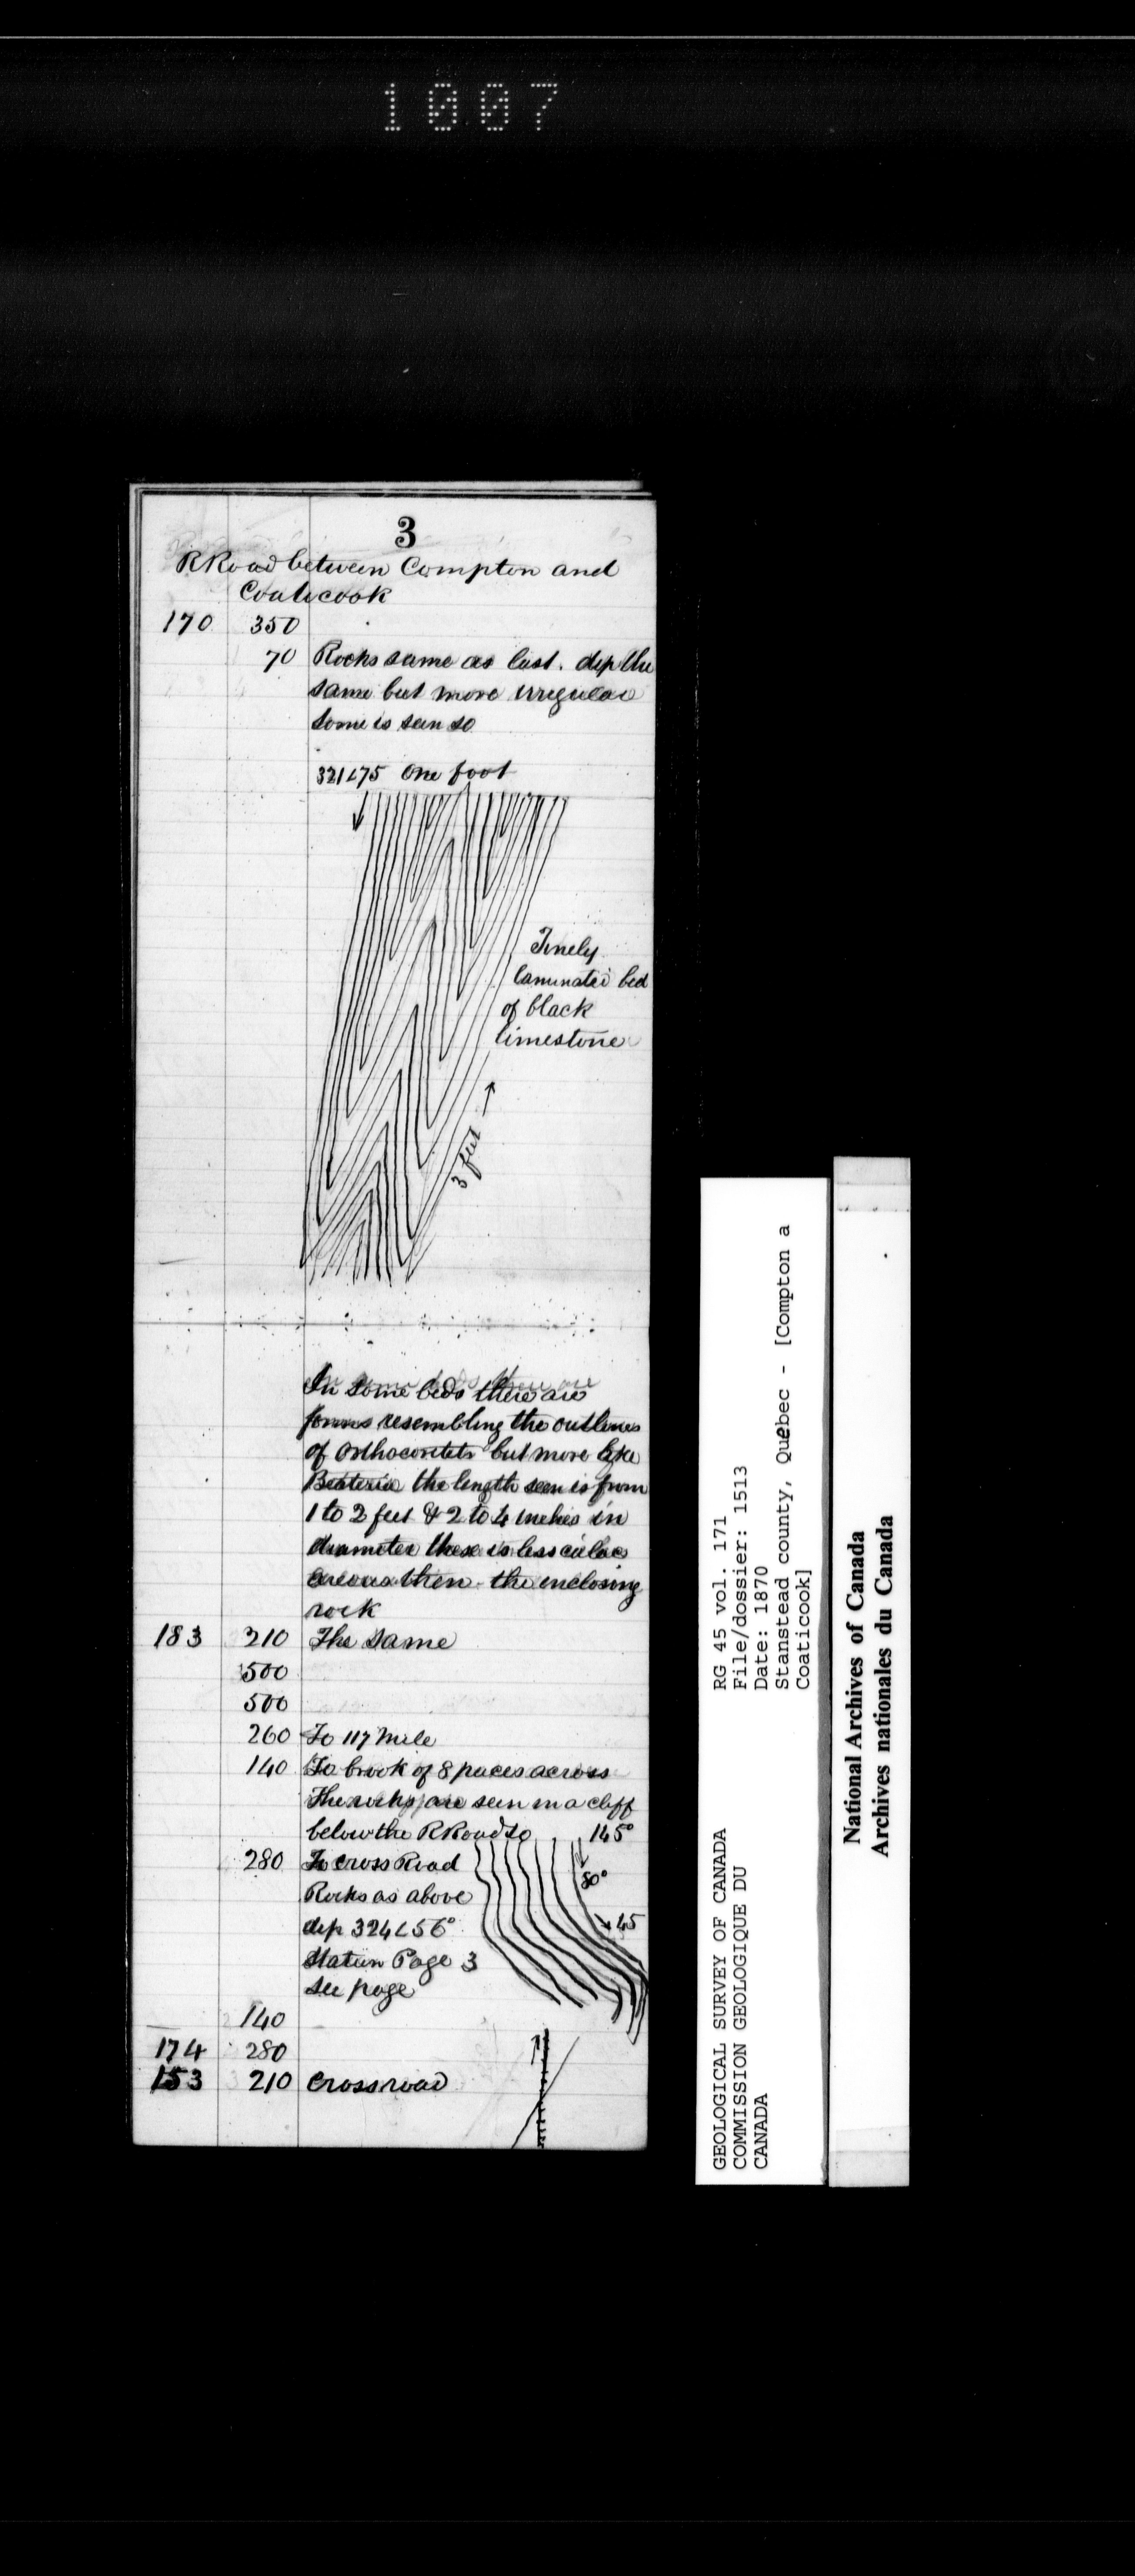 1007
3
RRoad between Compton and
Coaticook
170 350
70 Rocks same as last. dip the
same but more irregular
some is seen so
321∠75 One foot
Finely
laminated bed
of black
limestone
3 feet
In some beds there are
forms resembling the outlines
of Orthoceratets but more like
the length seen is from
1 to 2 feet & 2 to 4 inches in
diameter these is less calca
areous then the enclosing
rock
183 210 The same
500
500
260 To 117 Mile
140 To brook of 8 paces across
The rocks are seen in a cliff
below the RRoad so 145°
280 To cross Road
80°
Rocks as above
dip 324∠56° 45
Station Page 3
see page
140
174 280
153 210 Crossroad
GEOLOGICAL SURVEY OF CANADA
COMMISSION GEOLOGIQUE DU
CANADA
RG 45 vol. 171
File/dossier: 1513
Date: 1870
Stanstead county, Québec - [Compton a
Coaticook]
National Archives of Canada
Archives nationales du Canada